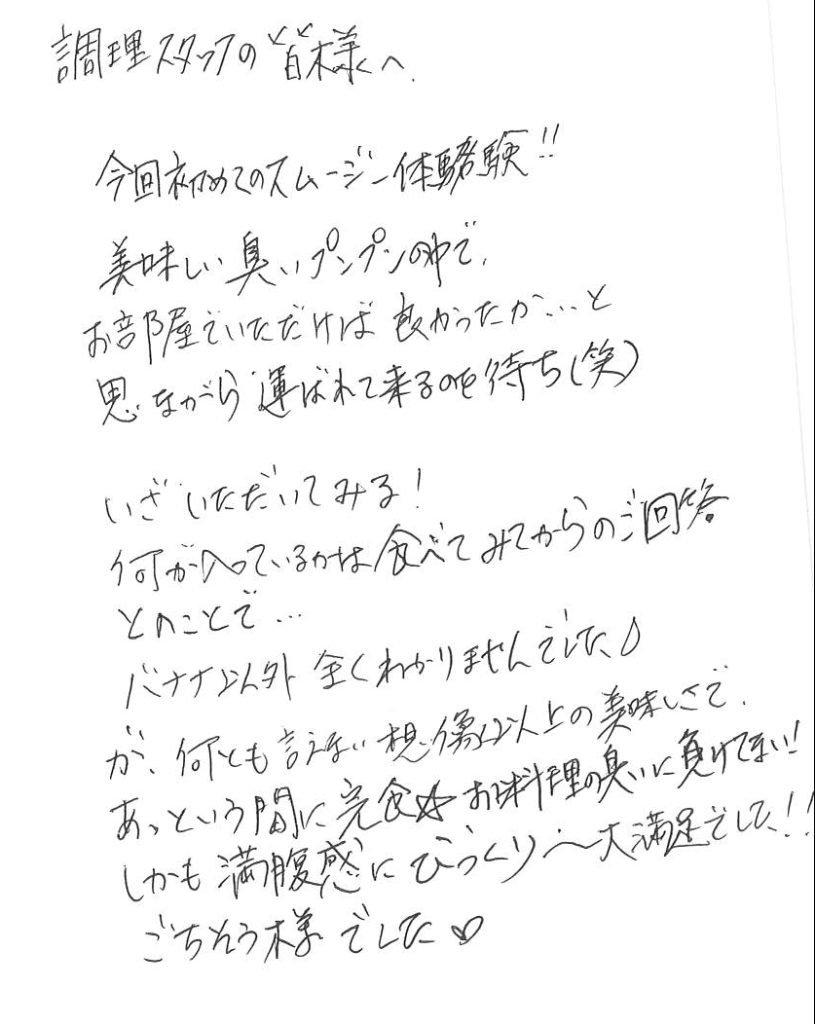 調理スタッフの皆様へ.
今回初めてのスムージー体験!!
美味しい臭いプンプンの中で、
お部屋でいただけば良かったか…と
思ながら運ばれて来るのを待ち(笑)
いざいただいてみる!
何が入っているかは食べてみてからのご回答
とのことで…
バナナ以外全くわかりませんでした
が、何とも言えない想像以上の美味しさで、
あっという間に完食☆お料理の臭いに負けてない!
しかも満腹感にびっくり〜大満足でした!!
ごちそう様でした♡